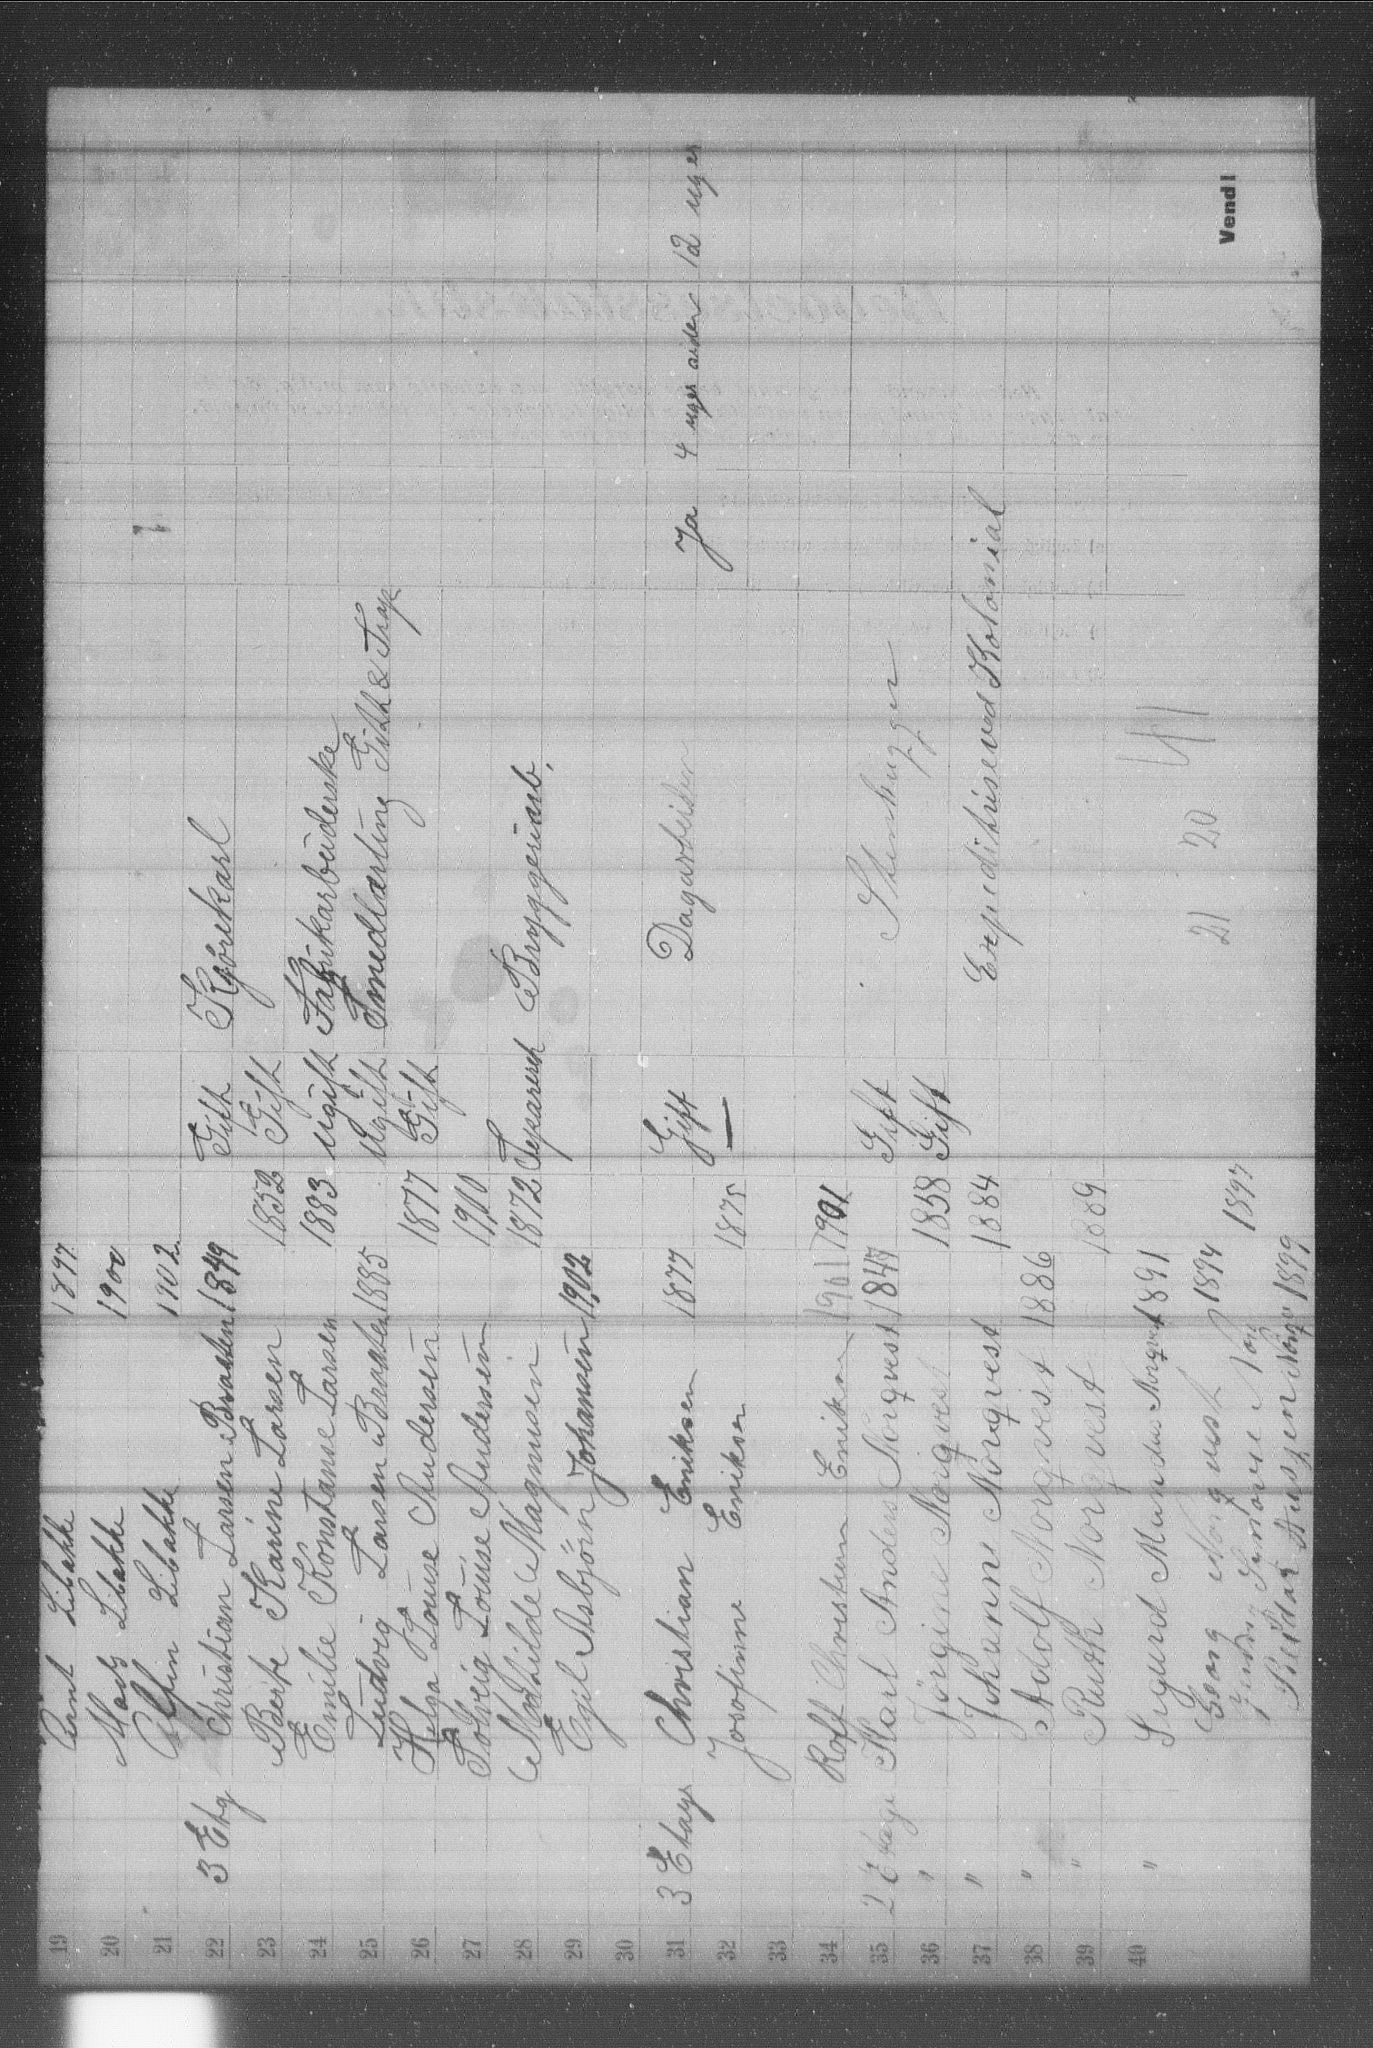 19 Arnt Libakke 1897
20 Mary Libakke 1900
21 Alfin Libakke 1902
22 3 Etg Christian Larsen Braaten 1849 Gift Kjörekarl
23 Berte Karine Larsen 1852 Gift
24 Emilie Konstanse Larsen 1883 Ugift Fabrikarbeiderske
25 Ludvig Larsen Braaten 1885 Ugift Smedlærling
26 Helga Louise Andersen 1877 Gift
27 Solveig Louise Andersen 1900
28 Mathilde Magnusen 1872 Separeret Bryggeriarb.
29 Egil Asbjörn Johansen 1902
30
31 3 Etage Christian Eriksen 1877 Gift Dagarbeider Ja 4 uger siden 12 uger
32 Josefinne Eriksen 1875
33
34 Rolf Christian Eriksen 1901 1901
35 2 Etage Karl Anders Norqvest 1847 Gift Stenhugger
36 " Jörgine Norqvest 1858 Gift
37 " Johanne Norqvest 1884 Expeditrise ved Kolonial
38 " Adolf Norqvist 1886
39 " Ruth Norqvest 1889
40 " Sigurd Mundus Norqvest 1891
Georg Norqvest 1894
1897
1899
21 20
Vend!